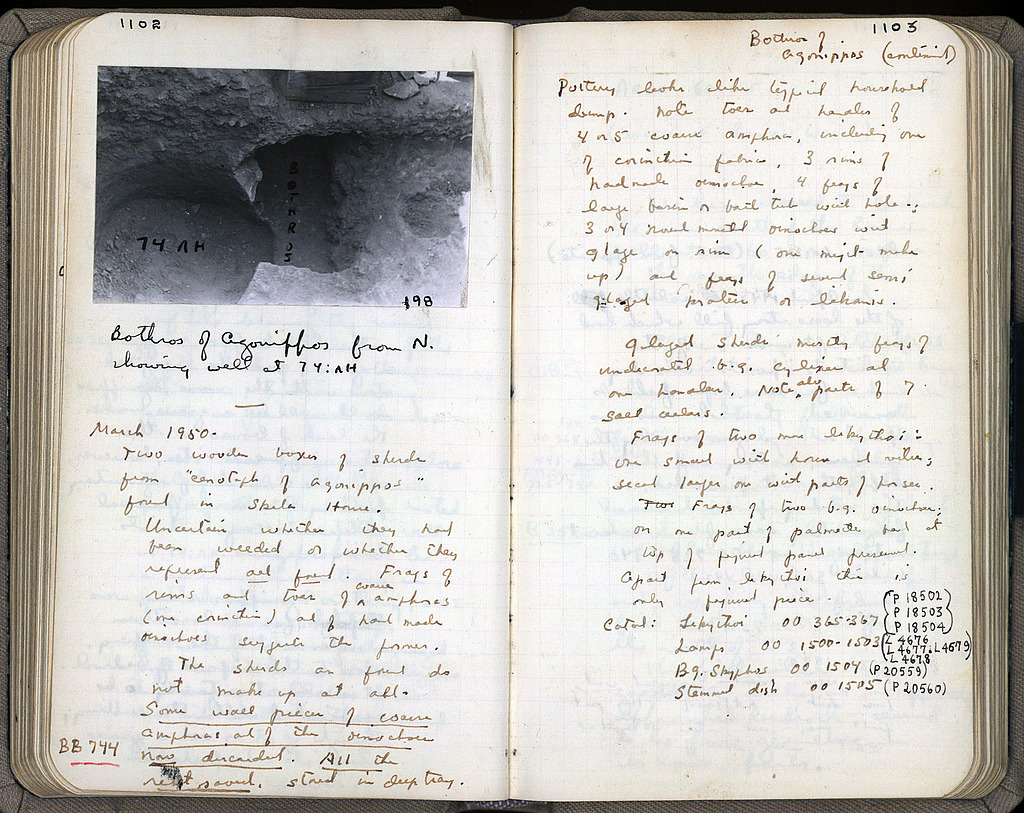 1102
74 ΛH
BOTHROS
198
Bothros of Agonippos from N.
showing well at 74:ΛH
March 1950.
Two wooden boxes of sherds
from "cenotaph of Agonippos"
found in Skela House.
Uncertain whether they had
been weeded or whether they
represent all found. Frags of
rims and toes of coarse amphoras
(one Corinthian) and of hand made
oinochoes suggests the former.
The sherds as found do
not make up at all.
Some wall pieces of coarse
amphoras and of the oinochoai
now discarded. All the
rest saved, stored in deep tray.
BB 744
1103
Bothros of
Agonippos (continued)
Pottery looks like typical household
dump. Note toes and handles of
4 or 5 coarse amphoras, including one
of Corinthian fabric, 3 rims of
handmade oinochoe, 4 frags of
large basin or bath tub with hole;
3 or 4 round mouthed oinochoes with
glaze on rim (one might make
up) and frags of several semi
glazed kraters or lekanis.
Glazed sherds mostly frags of
undecorated b.g. cylixes and
one handles. Note also parts of 7
salt cellars.
Frags of two more lekythoi:
one small with horse at;
second larger one with parts of horses.
Two Frags of two b.g. oinochoai;
on one part of palmette band at
top of figured panel preserved.
Apart from lekythoi this is
only figured piece.
Catal: Lekythoi OO 365-367 (P 18502
P 18503
P 18504)
Lamps OO 1500-1503 (L 4676
L 4677, L 4679
L 4678)
B.g. Skyphos OO 1504 (P 20559)
Stemmed dish OO 1505 (P 20560)